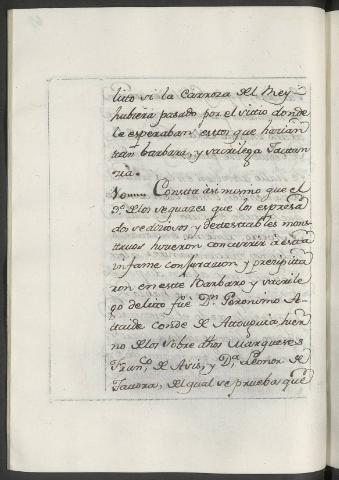 lito si la Carroza del Rey
hubiera pasado por el sitio donde
le esperaban estos que harian
tan barbara, y sacrilega
Consta asi mismo que el
3.º de los sequazes que los expresa
dos sediciosos y detestables mons
truos hicieron concurrir á esta
infame conjuracion y precipita
ron en este Barbaro y sacrile
go delito fué Dn. Geronimo A
taide Conde de Atouguia hier
no de los sobre dhos Marqueses
Fran.co de Asis, y D.a Leonor de
Tavora, del qual se prueba que